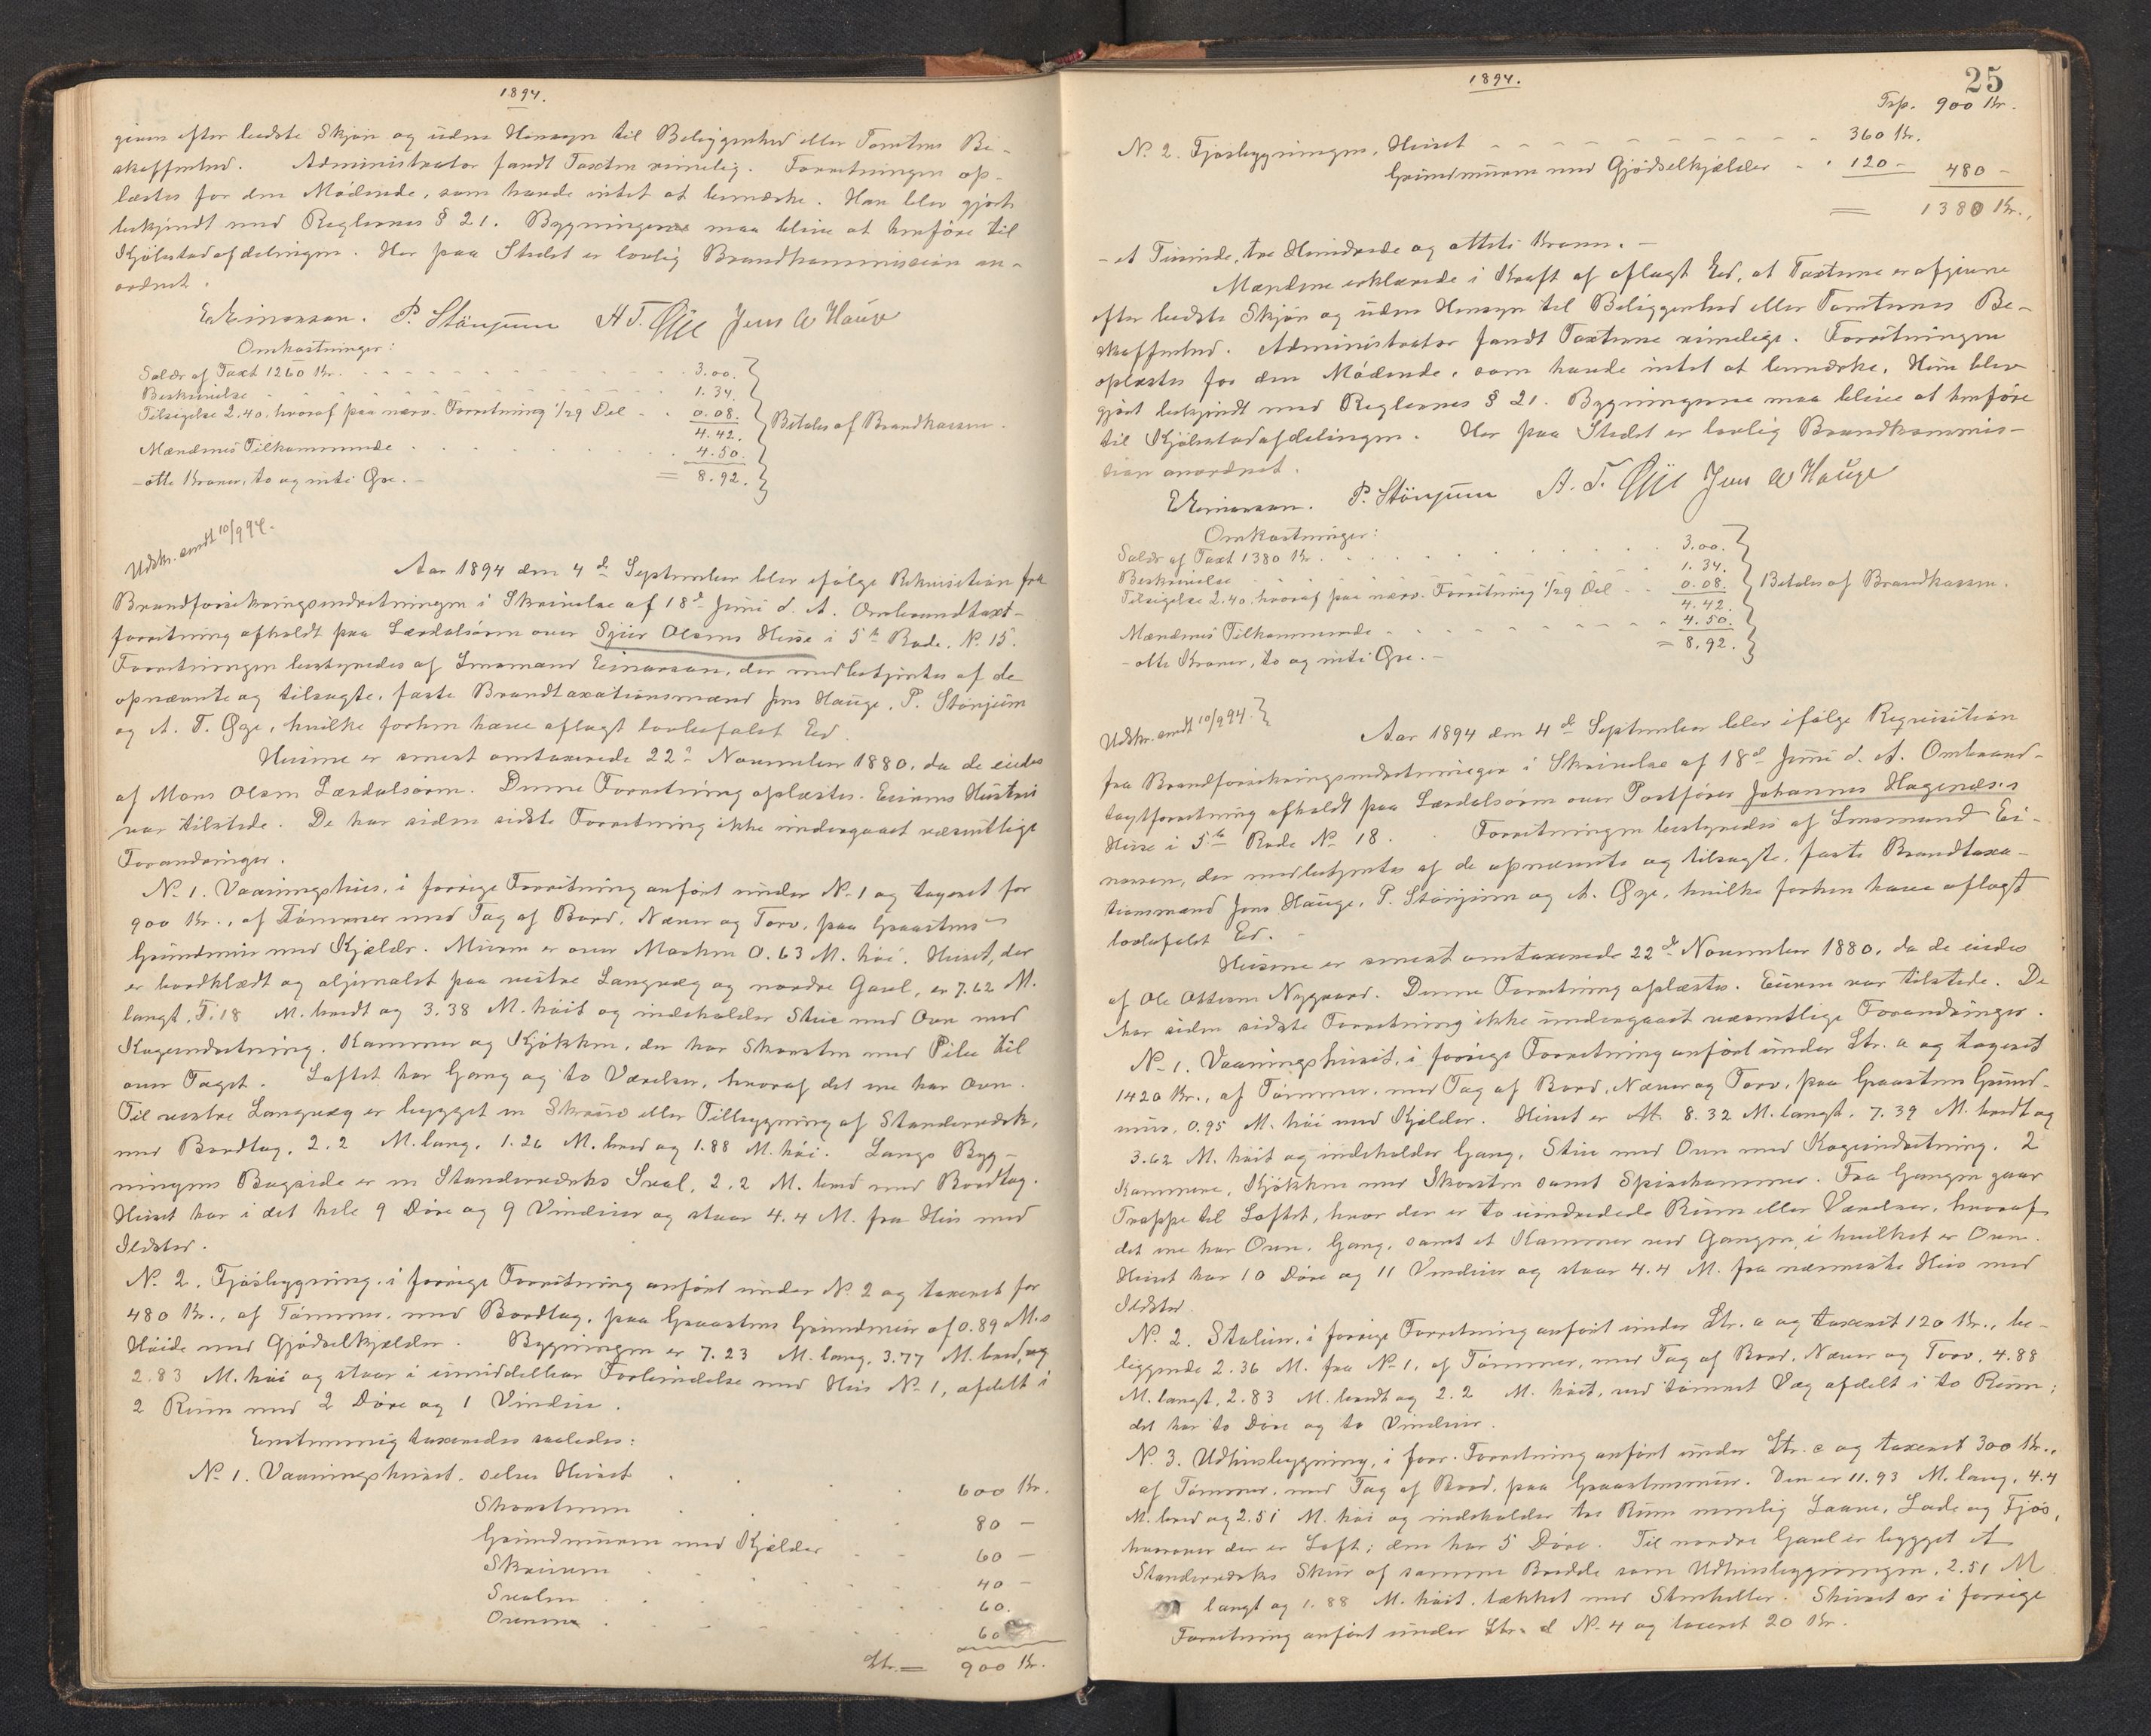 1894.
givne efter bedste Skjøn og uden Hensyn til Beliggenhed eller Tomtens Be-
skaffenhed. Administrator fandt Taxten rimelig. Forretningen op-
læstes for den Mødende, som havde intet at bemærke. Han blev gjort
bekjendt med Reglernes § 21. Bygningerne maa blive at henføre til
Kjøbstadafdelingen. Her paa Stedet er lovlig Brandkommission an-
ordnet.
E. Einarsen. P. Stönjum A T. Øye Jens W Hauge
Omkostninger:
Salær af Taxt 1260 Kr. 3.00.
Beskrivelse 1.34.
Tilsigelse 2.40, hvoraf paa nærv. Forretning 1/29 Del 0.08.
4.42.
Betales af Brandkassen.
Mændenes Tilkommende 4.50.
- otte Kroner, to og niti Øre. - = 8.92.
Udskr. sendt 10/9 94.
Aar 1894 den 4de September blev ifølge Rekvisition fra
Brandforsikringsindretningen i Skrivelse af 18de Juni d. A. Ombrandtaxt-
forretning afholdt paa Lærdalsøren over Sjur Olsens Huse i 5te Rode, No 15.
Forretningen bestyredes af Lensmand Einarsen, der medbetjentes af de
opnævnte og tilsagte, faste Brandtaxationsmænd Jens Hauge, P. Stönjum
og A. T. Øye, hvilke forhen have aflagt lovbefalet Ed.
Husene er senest omtaxerede 22de November 1880, da de eiedes
af Mons Olsen Lærdalsøren. Denne Forretning oplæstes. Eierens Hustru
var tilstede. De har siden sidste Forretning ikke undergaaet væsentlige
Forandringer.
No 1. Vaaningshus, i forrige Forretning anført under No 1 og taxeret for
900 Kr., af Tømmer med Tag af Bord, Næver og Torv, paa Graastens
Grundmur med Kjælder. Muren er over Marken 0.63 M. høi. Huset, der
er bordklædt og oljemalet paa vestre Langvæg og nordre Gavl, er 7.62 M.
langt, 5.18 M. bredt og 3.38 M. høit og indeholder Stue med Ovn med
Kogeindretning, Kammer og Kjøkken, der har Skorsten med Pibe til
over Taget. Loftet har Gang og to Værelser, hvoraf det ene har Ovn.
Til vestre Langvæg er bygget en Skruv eller Tilbygning af Standerværk,
med Bordtag, 2.2 M. lang, 1.26 M. bred og 1.88 M. høi. Langs Byg-
ningens Bagside er en Standerværks Sval, 2.2 M. bred med Bordtag.
Huset har i det hele 9 Døre og 9 Vinduer og staar 4.4 M. fra Hus med
Ildsted.
No 2. Fjøsbygning, i forrige Forretning anført under No 2 og taxeret for
480 Kr., af Tømmer, med Bordtag, paa Graastens Grundmur af 0.89 M.s
Høide med Gjødselkjælder. Bygningen er 7.23 M. lang, 3.77 M. bred, og
2.83 M. høi og staar i umiddelbar Forbindelse med Hus No 1, afdelt i
2 Rum med 2 Døre og 1 Vindue.
Enstemmig taxeredes saaledes:
No 1. Vaaningshuset, selve Huset 600 Kr.
Skorstenen 80 -
Grundmuren med Kjælder 60 -
Skruven 40 -
Svalen 60.
Ovnene 60
Ltr. = 900 Kr.
1894.
25
Trsp. 900 Kr.
No 2. Fjøsbygningen, Huset 360 Kr.
Grundmuren med Gjødselkjælder 120 - 480 -
= 1380 Kr.,
- et Tusinde, tre Hundrede og otteti Kroner. -
Mændene erklærede i Kraft af aflagt Ed, at Taxterne er afgivne
efter bedste Skjøn og uden Hensyn til Beliggenhed eller Tomternes Be-
skaffenhed. Administrator fandt Taxterne rimelige. Forretningen
oplæstes for den Mødende, som havde intet at bemærke. Hun blev
gjort bekjendt med Reglernes § 21. Bygningerne maa blive at henføre
til Kjøbstadafdelingen. Her paa Stedet er lovlig Brandkommis-
sion anordnet.
E. Einarsen. P. Stönjum A. T. Øye Jens W Hauge
Omkostninger:
Salær af Taxt 1380 Kr. 3.00.
Beskrivelse 1.34.
Tilsigelse 2.40, hvoraf paa nærv. Forretning 1/29 Del 0.08.
4.42.
Betales af Brandkassen.
Mændenes Tilkommende 4.50.
- otte Kroner, to og niti Øre. - = 8.92.
Udskr. sendt 10/9 94.
Aar 1894 den 4de September blev ifølge Requisition
fra Brandforsikringsindretningen i Skrivelse af 18de Juni d. A. Ombrand-
taxtforretning afholdt paa Lærdalsøren over Postfører Johannes Hagenæs's
Huse i 5te Rode No 18. Forretningen bestyredes af Lensmand Ei-
narsen, der medbetjentes af de opnævnte og tilsagte, faste Brandtaxa-
tionsmænd Jens Hauge, P. Stönjum og A. Øye, hvilke forhen have aflagt
lovbefalet Ed. -
Husene er senest omtaxerede 22de November 1880, da de eiedes
af Ole Ottesen Nygaard. Denne Forretning oplæstes. Eieren var tilstede. De
har siden sidste Forretning ikke undergaaet væsentlige Forandringer.
No 1. Vaaningshuset, i forrige Forretning anført under Ltr. a og taxeret
1420 Kr., af Tømmer, med Tag af Bord, Næver og Torv, paa Graastens Grund-
mur, 0.95 M. høi med Kjælder. Huset er 8.32 M. langt, 7.39 M. bredt og
3.62 M. høit og indeholder Gang, Stue med Ovn med Kogeindretning, 2
Kammere, Kjøkken med Skorsten samt Spisekammer. Fra Gangen gaar
Trappe til Loftet, hvor der er to uindredede Rum eller Værelser, hvoraf
det ene har Ovn, Gang, samt et Kammer ved Gangen, i hvilket er Ovn.
Huset har 10 Døre og 11 Vinduer og staar 4.4 M. fra nærmeste Hus med
Ildsted.
No 2. Staluur, i forrige Forretning anført under Ltr. a og taxeret 120 Kr., be-
liggende 2.36 M. fra No 1, af Tømmer, med Tag af Bord, Næver og Torv, 4.88
M. langt, 2.83 M. bredt og 2.2 M. høit, ved tømret Væg afdelt i to Rum;
det har to Døre og to Vinduer.
No 3. Udhusbygning, i forr. Forretning anført under Ltr. c og taxeret 300 Kr.,
af Tømmer, med Tag af Bord, paa Graastensmur. Den er 11.93 M. lang, 4.4
M. bred og 2.51 M. høi og indeholder tre Rum nemlig Laave, Lade og Fjøs,
hvorover der er Loft; den har 5 Døre. Til nordre Gavl er bygget et
Standerværks Skur af samme Bredde som Udhusbygningen, 2.51 M
langt og 1.88 M. høit, tækket med Stenheller. Skuret er i forrige
Forretning anført under Ltr. d No 4 og taxeret 20 Kr.